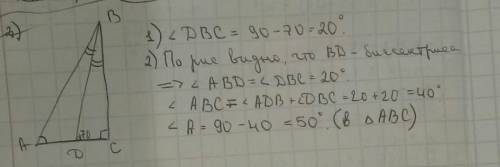 2)
B
A
D
70
C
1) ∠DBC = 90 - 70 = 20°
2) По рис видно, что BD - биссектриса
=> ∠ABD = ∠DBC = 20°
∠ABC = ∠ADB + ∠DBC = 20 + 20 = 40°
∠A = 90 - 40 = 50° (в △ABC)